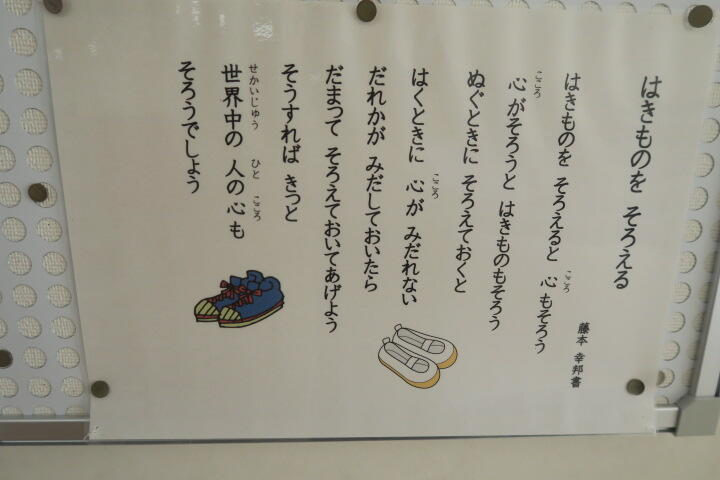 はきものを そろえる
藤本 幸邦書
はきものを そろえると 心もそろう
心がそろうと はきものもそろう
ぬぐときに そろえておくと
はくときに 心が みだれない
だれかが みだしておいたら
だまって そろえておいてあげよう
そうすれば きっと
世界中の 人の心も
そろうでしょう
こころ
こころ
こころ
せかいじゅう
ひと
こころ